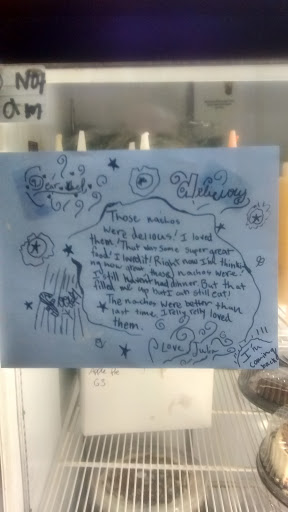 Not
am
Dear
Those nachos
were delious! I loved
them! That was some super great
food! I loved it! Right now I'm thinki
ng how good those nachos were!
I still havent had dinner. But that
filled me up but I can still eat!
The nachos were better than
last time. I relly relly loved
them.
Love, Julia
!!!
I'm
coming
back!
Apple Pie